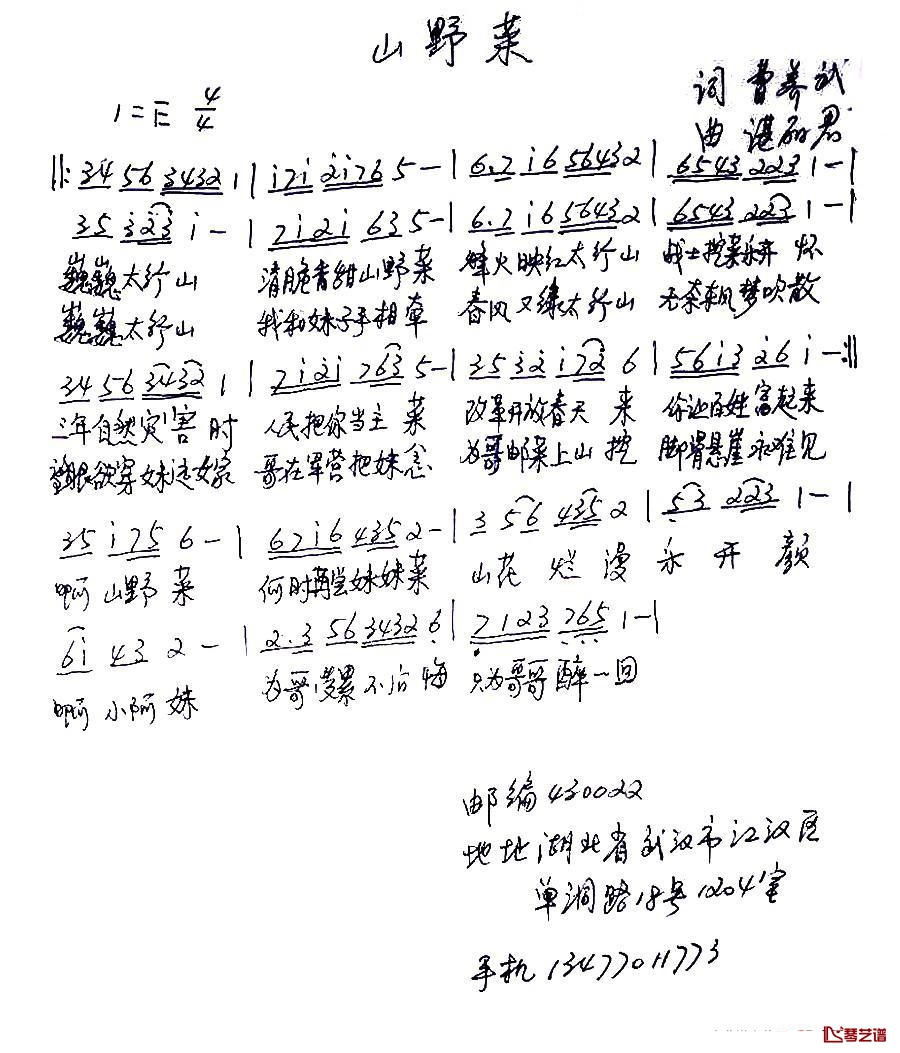 山野菜
词 曹養武
1=E 4/4
曲 谌丽君
‖: 34 56 3432 1 | i7i 2i76 5 - | 6.7 i6 56432 | 6543 223 1 - |
35 323 i - | 7i2i 63 5 - | 6.7 i6 56432 | 6543 223 1 - |
巍巍太行山 清脆香甜山野菜 烽火映红太行山 战士挖菜乐开怀
巍巍太行山 我和妹子手相牵 春风又绿太行山 无奈春风梦吹散
34 56 3432 1 | 7i2i 763 5 - | 35 32 i72 6 | 56i3 26 i - :‖
三年自然灾害时 人民把你当主菜 改革开放春天来 你让百姓富起来
望眼欲穿妹过 哥在军营把妹念 为哥邮菜上山挖 脚滑悬崖永难见
35 i75 6 - | 67i6 435 2 - | 3 56 435 2 | 53 223 1 - |
啊 山野菜 何时再尝妹妹菜 山花烂漫乐开颜
6i 43 2 - | 2.3 56 3432 6 | 7123 765 1 - |
啊 小阿妹 为哥受累不后悔 只为哥哥醉一回
邮编430022
地址湖北省武汉市江汉区
单洞路18号1204室
手机13477011773
琴艺谱